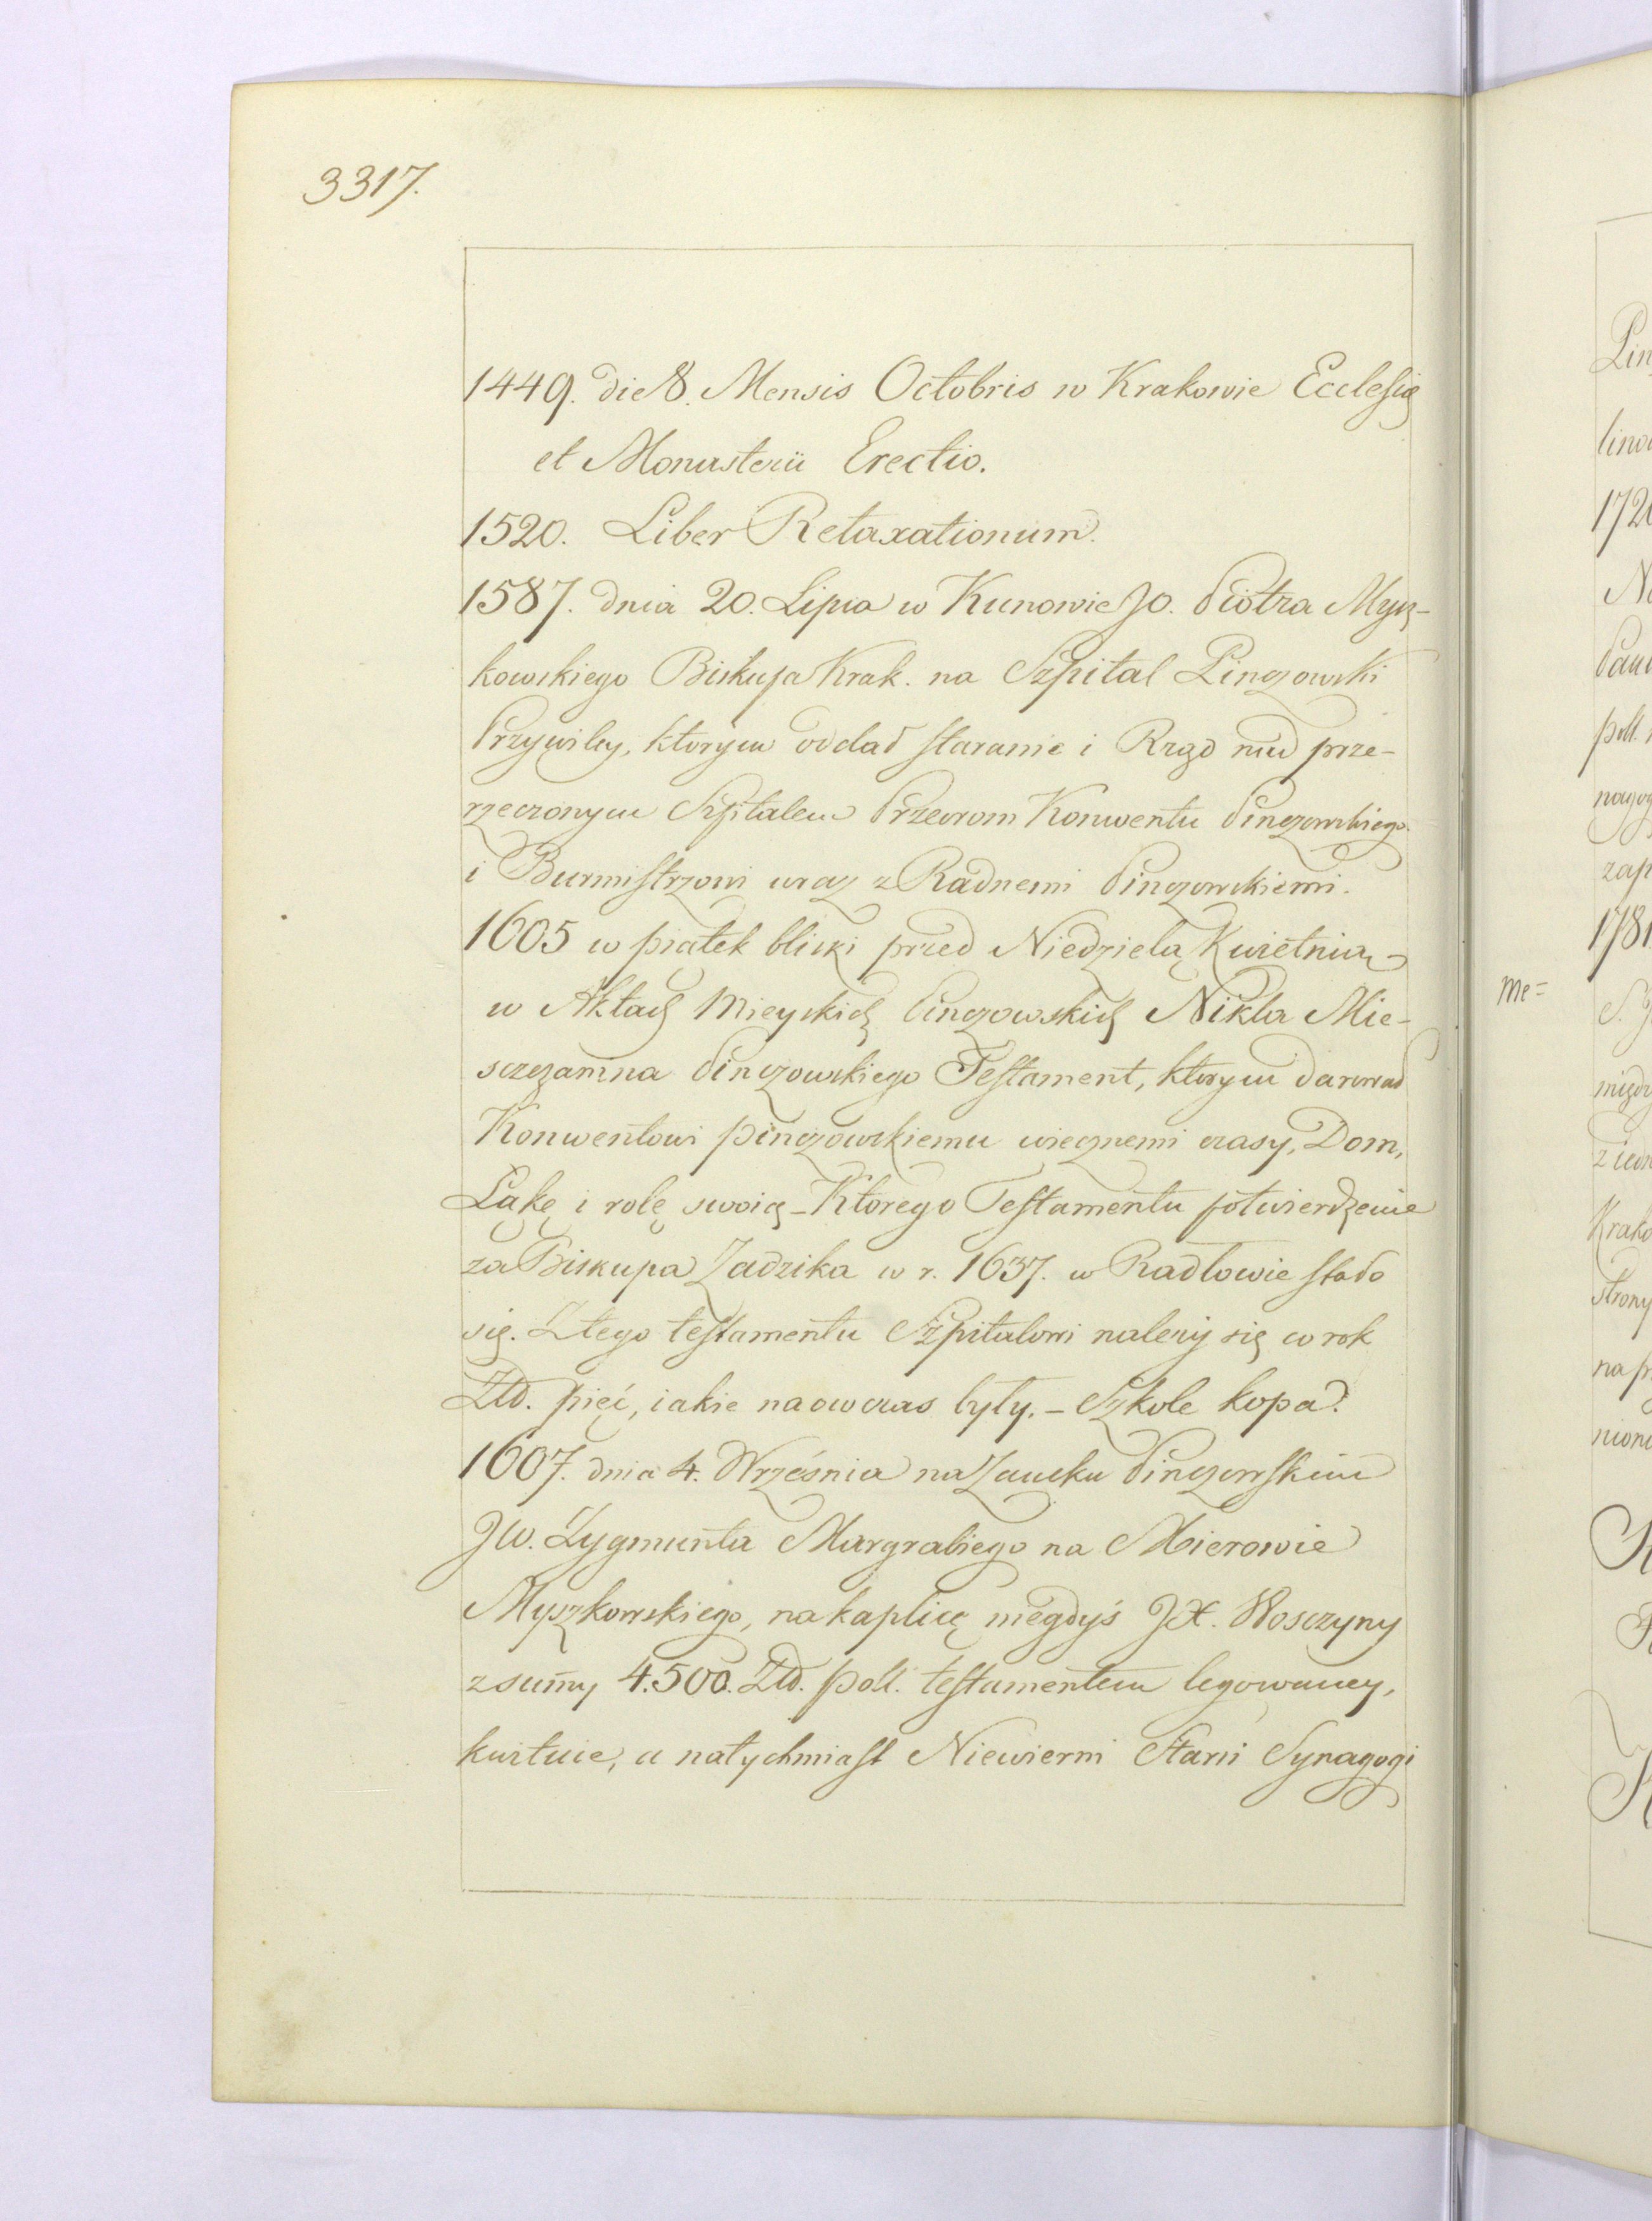 3317.
1449. die 8. Mensis Octobris w Krakowie Ecclesię
et Monasterii Erectio.
1520. Liber Retaxationum.
1587. dnia 20. Lipca w Kunowie JO. Piotra Mysz-
kowskiego Biskupa Krak. na Szpital Pinczowski
Przywiley, którym oddał staranie i Rząd nad prze-
rzeczonym Szpitalem Przeorom Konwentu Pinczowskiego
i Burmistrzowi wraz z Radnemi Pinczowskiemi.
1605 w piątek bliski przed Niedzielą Kwietnią
w Aktach Mieyskich Pinczowskich Nikla Mie-
szczanina Pinczowskiego Testament, którym darował
Konwentowi pinczowskiemu wiecznemi czasy, Dom,
Łąkę i rolę swoię – Którego Testamentu potwierdzenie
za Biskupa Zadzika w r. 1637. w Radłowie stało
się. Z tego testamentu Szpitalowi należy się co rok
Złł. pięć, iakie naowczas były. – Szkole kopa.
1607. dnia 4. Września na Zamku Pinczowskim
JW. Zygmunta Margrabiego na Mierowie
Myszkowskiego, na kaplicę niegdyś JX. Wosczyny
z sum̃y 4.500. Złł. poll. testamentem legowaney,
kwituie, a natychmiast Niewierni Starsi Synagogi
me=